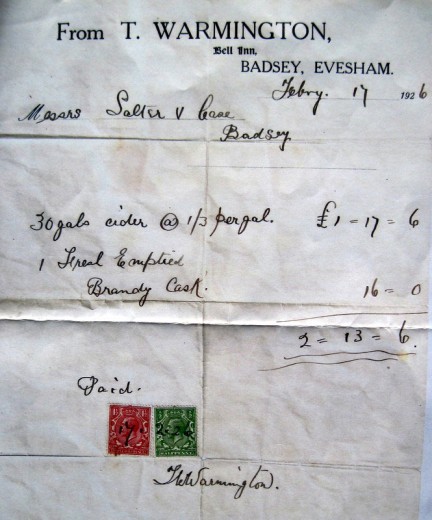 From T. WARMINGTON,
Bell Inn,
BADSEY, EVESHAM.
Febry. 17 1926
Messrs Salter & Case
Badsey
30 gals cider @ 1/3 per gal. £1 = 17 = 6
1 Fresh Emptied
Brandy Cask. 16 = 0
2 = 13 = 6
Paid.
17 2
T Warmington.